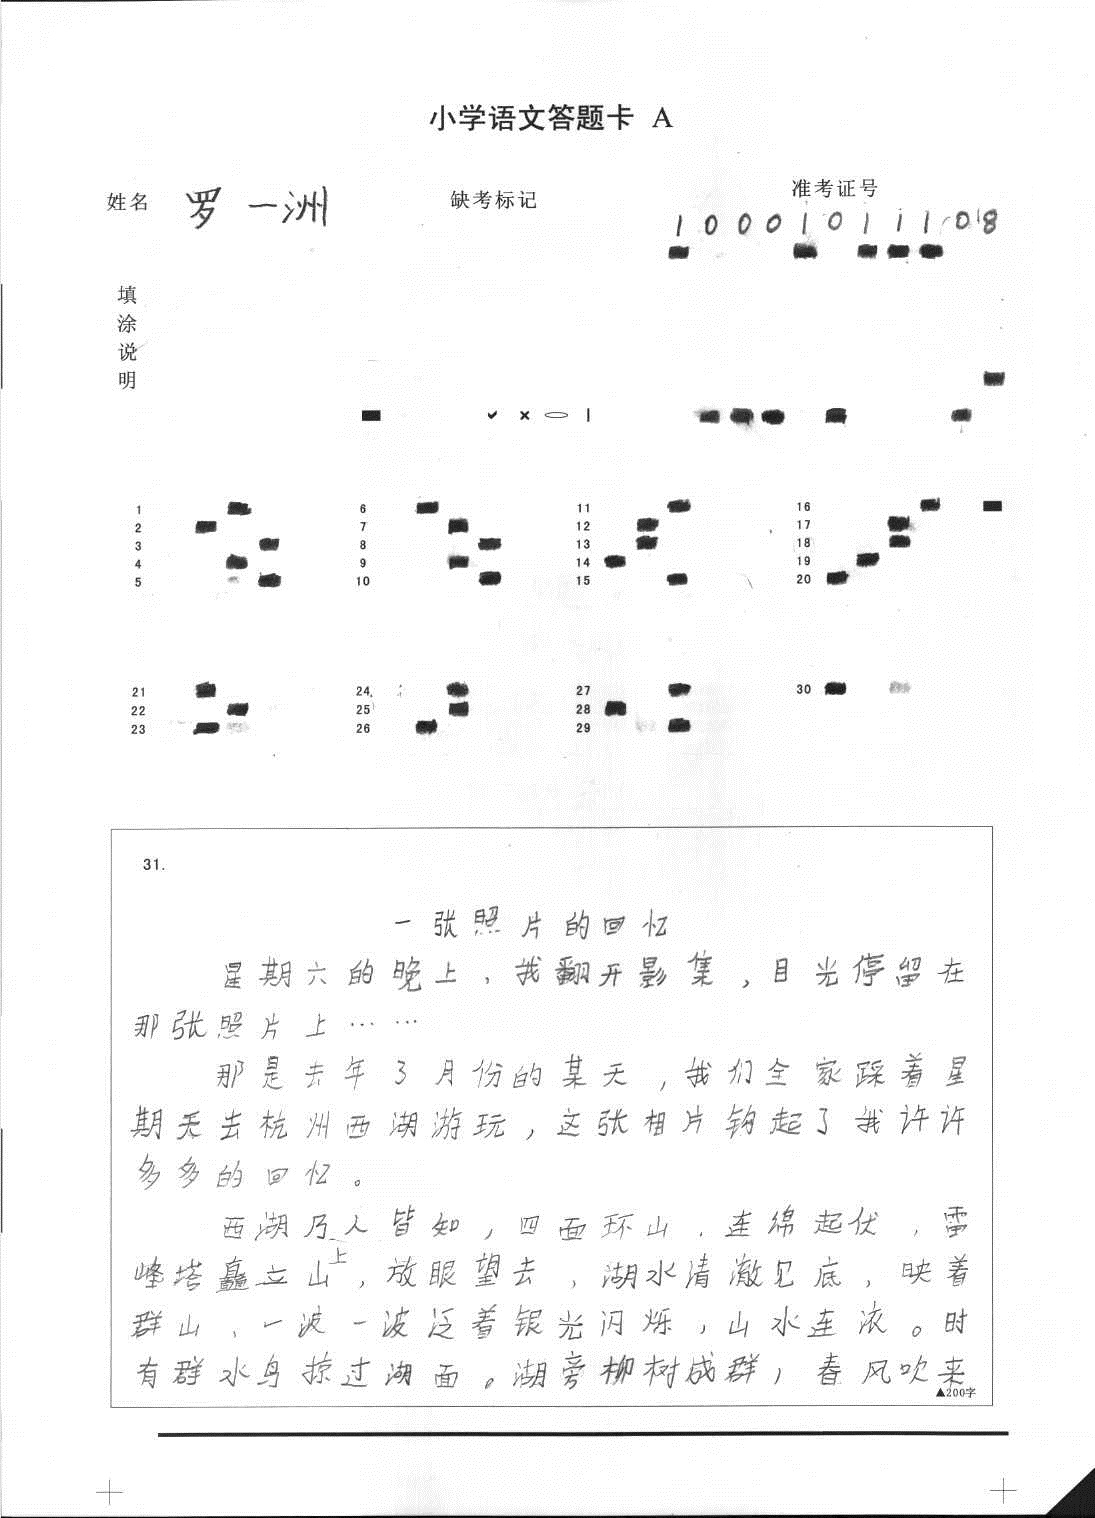 小学语文答题卡 A
姓名 罗一洲 缺考标记 准考证号
10001011108
填涂说明
1 6 11 16
2 7 12 17
3 8 13 18
4 9 14 19
5 10 15 20
21 24 27 30
22 25 28
23 26 29
31.
一张照片的回忆
星期六的晚上,我翻开影集,目光停留在
那张照片上……
那是去年3月份的某天,我们全家踩着星
期天去杭州西湖游玩,这张相片钩起了我许许
多多的回忆。
西湖乃人皆如,四面环山,连绵起伏,雷
峰塔矗立山上,放眼望去,湖水清澈见底,映着
群山、一波一波泛着银光闪烁,山水连浓。时
有群水鸟掠过湖面。湖旁柳树成群,春风吹来
▲200字